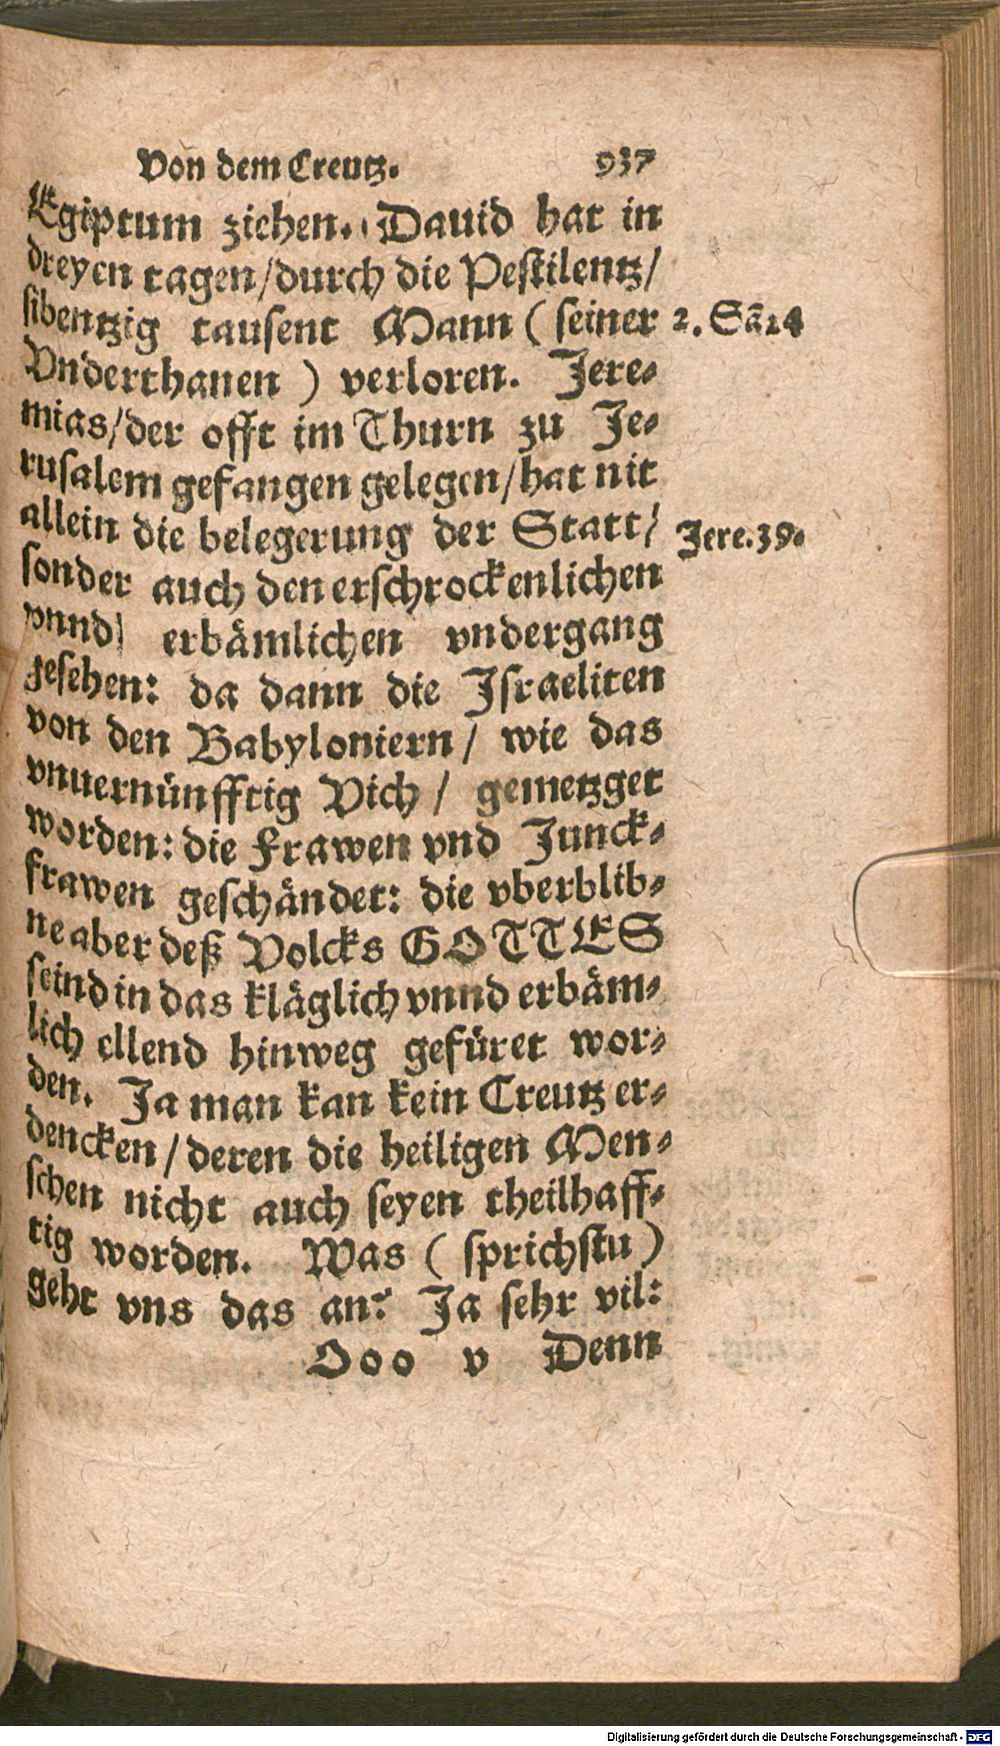 Von dem Creutz. 937
Egiptum ziehen. David hat in
dreyen tagen/durch die Pestilentz/
sibentzig tausent Mann ( seiner
2. Sā 24
Vnderthanen ) verloren. Jere-
mias/der offt im Thurn zu Je-
rusalem gefangen gelegen/hat nit
allein die belegerung der Statt/
Jere.39.
sonder auch den erschrockenlichen
vnnd erbämlichen vndergang
gesehen: da dann die Israeliten
von den Babyloniern/ wie das
vnuernünfftig Vich/ gemetzget
worden: die Frawen vnd Junck-
frawen geschändet: die vberblib-
ne aber deß Volcks GOTTES
seind in das kläglich vnnd erbäm-
lich ellend hinweg gefüret wor-
den. Ja man kan kein Creutz er-
dencken/deren die heiligen Men-
schen nicht auch seyen theilhaff-
tig worden. Was ( sprichstu )
geht vns das an? Ja sehr vil:
Ooo v Denn
Digitalisierung gefördert durch die Deutsche Forschungsgemeinschaft - DFG